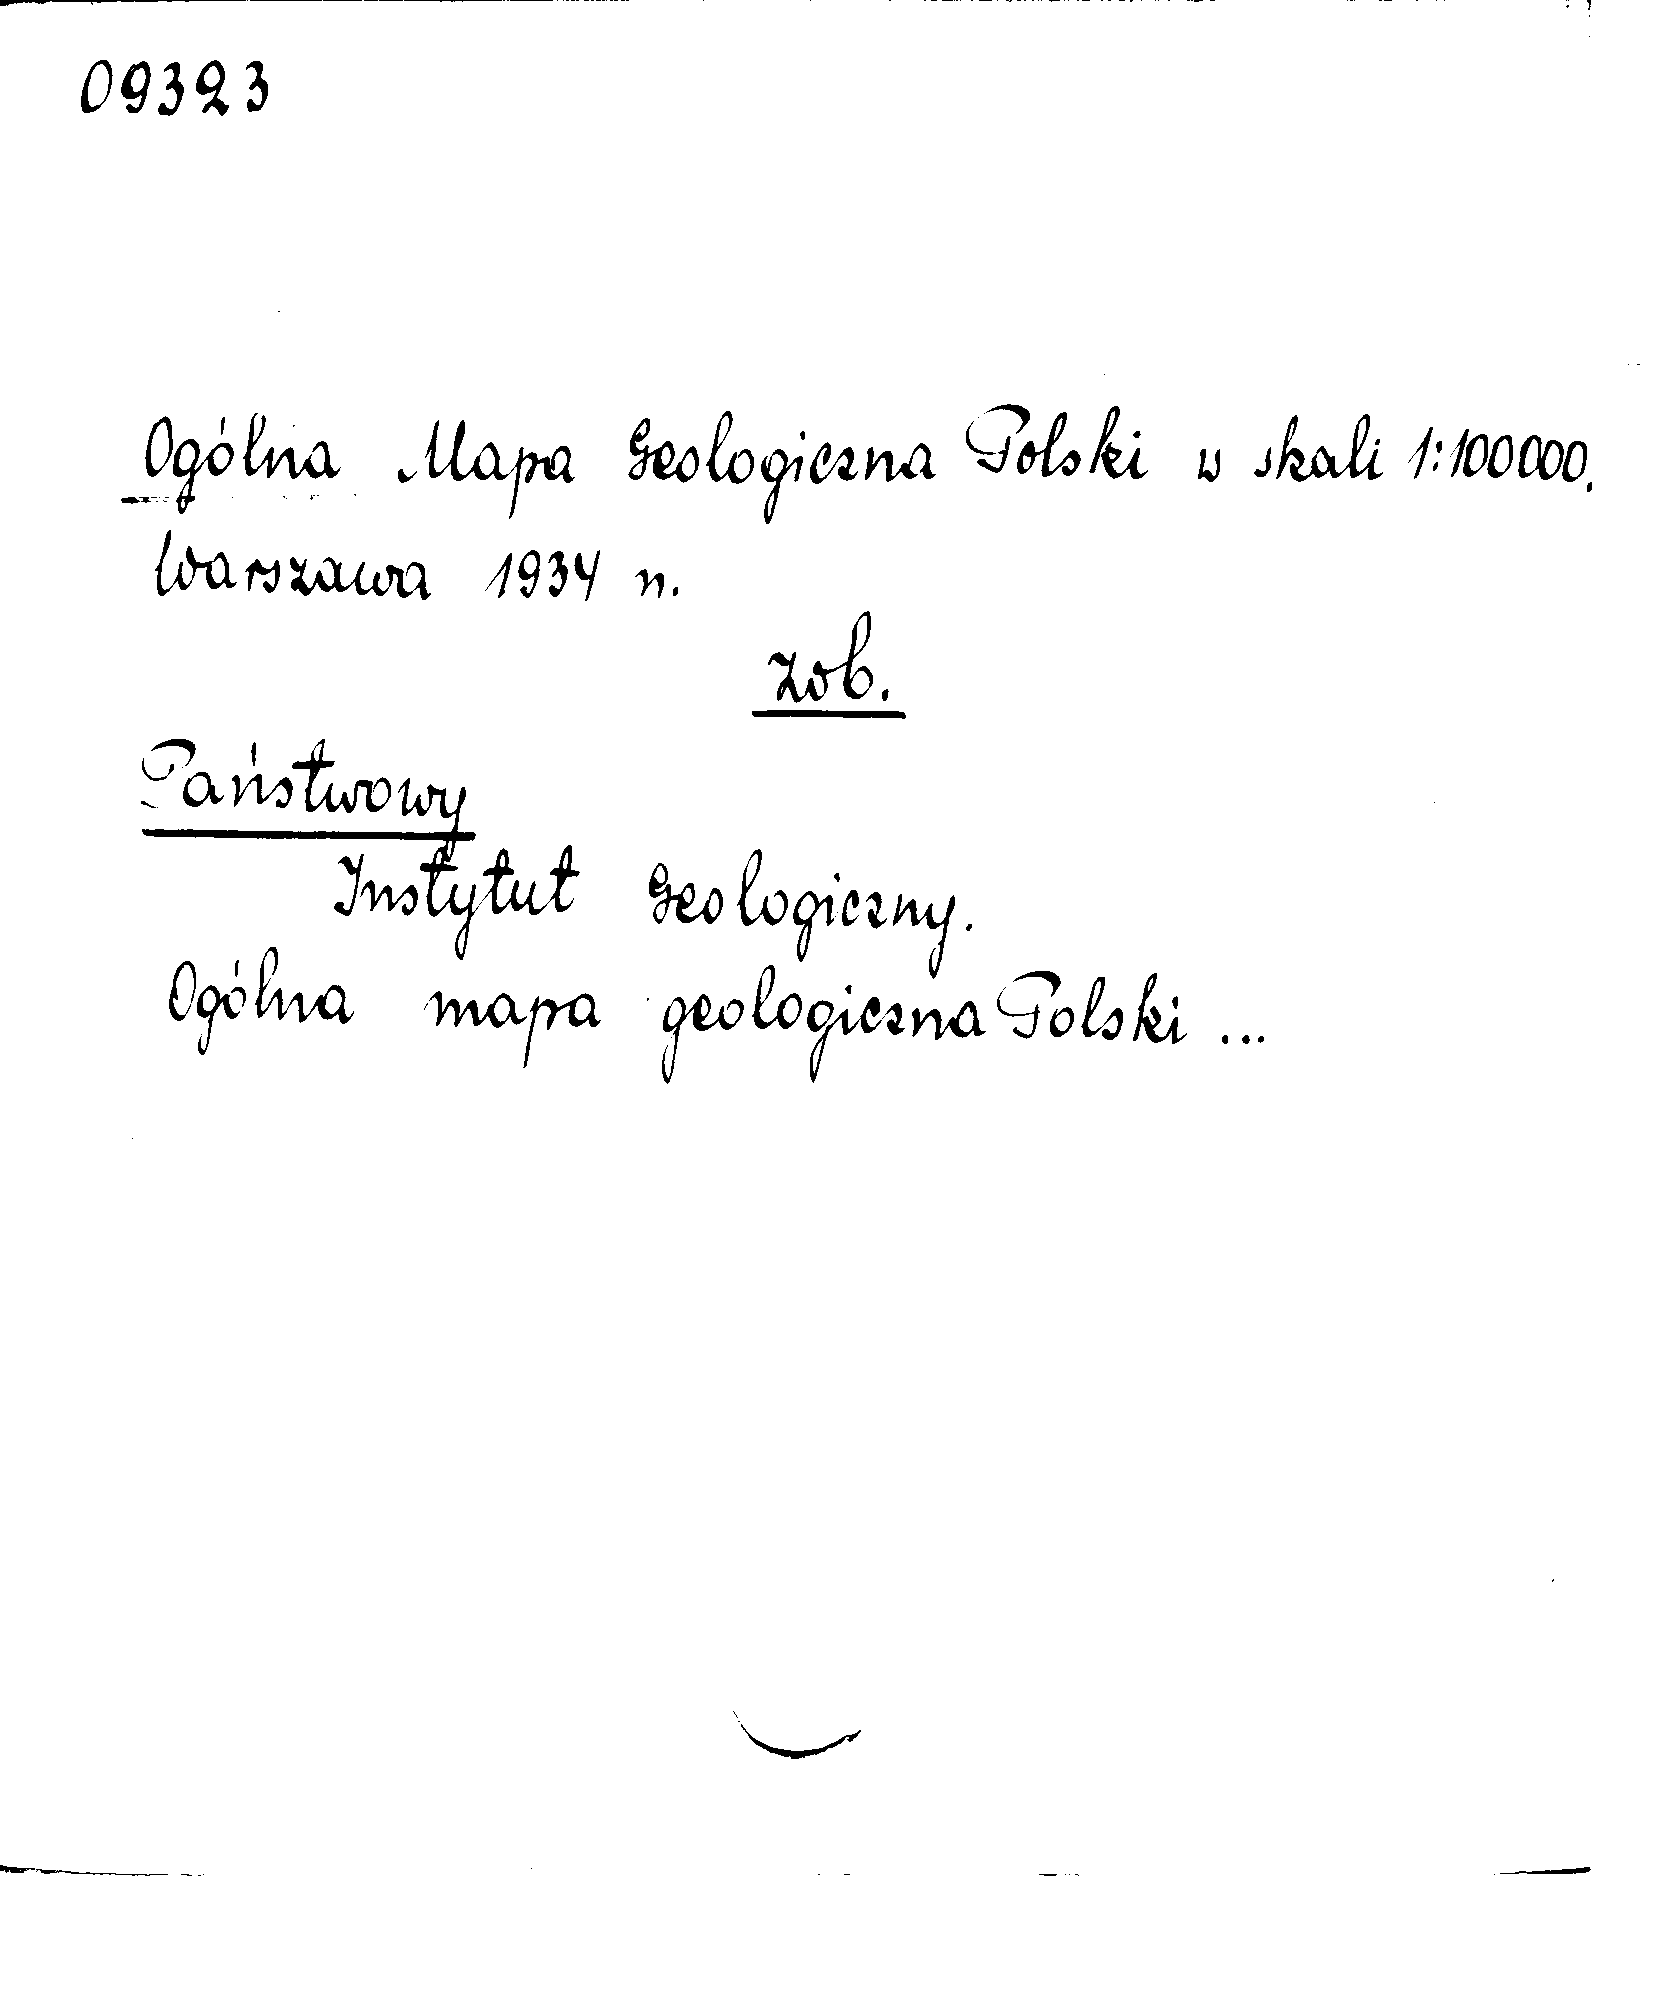 09323
Ogólna Mapa Geologiczna Polski w skali 1:100000.
Warszawa 1934 n.
zob.
Państwowy
Instytut Geologiczny.
Ogólna mapa geologiczna Polski ...